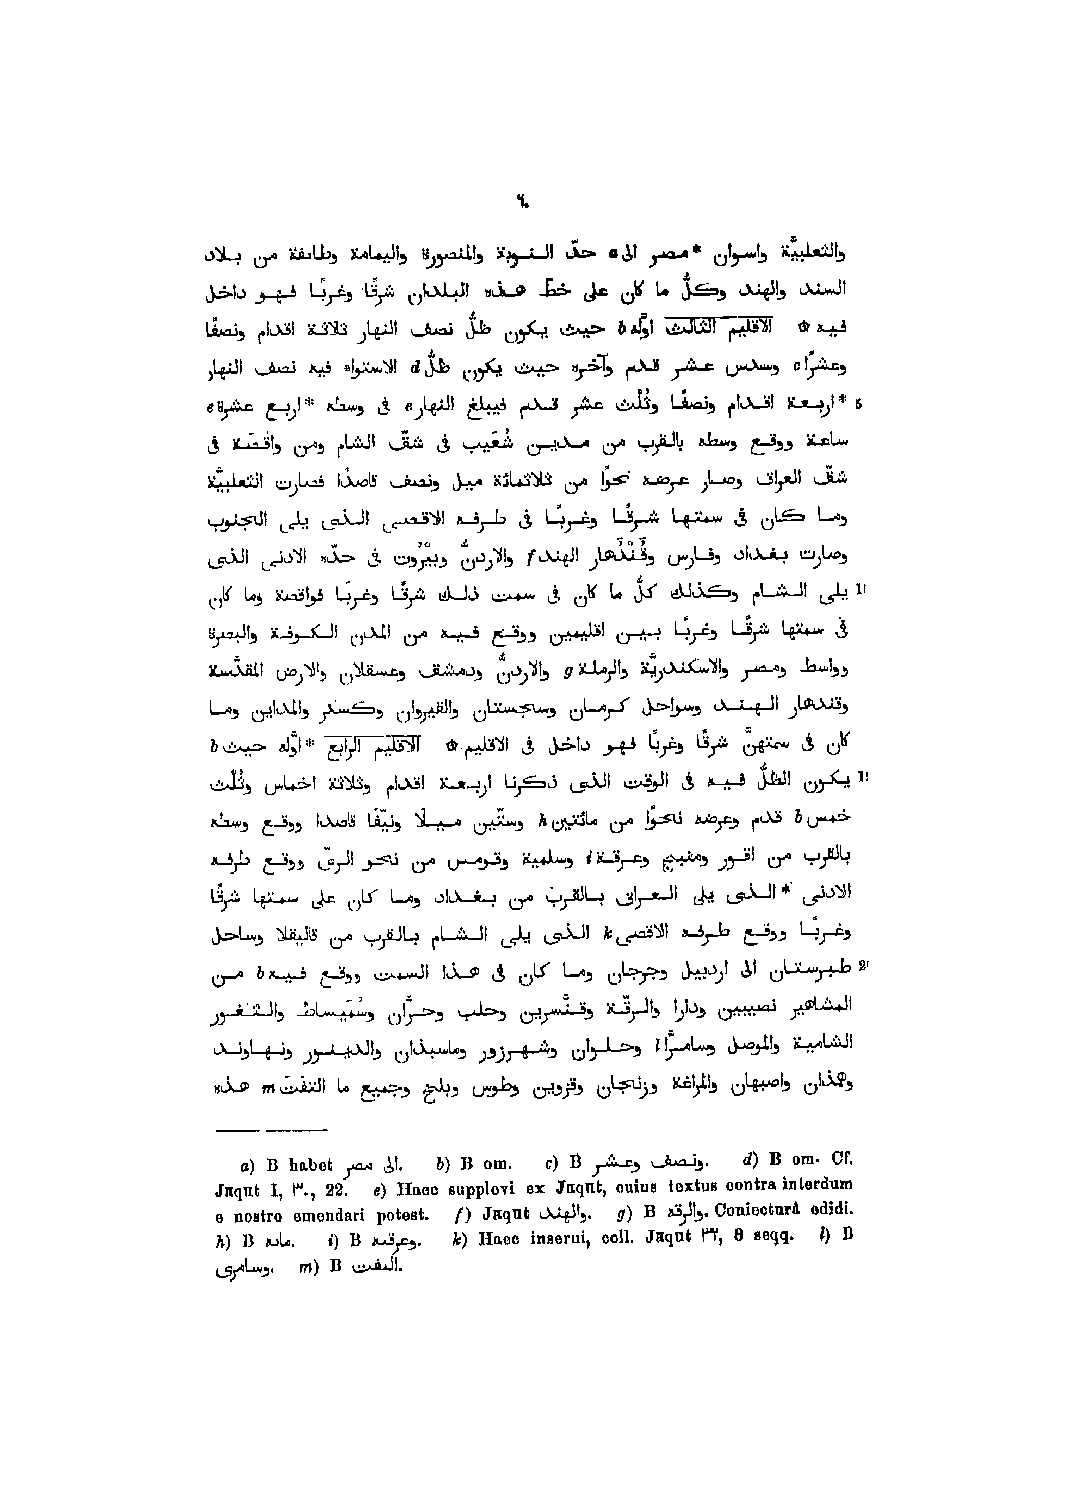 ٦٠
والثعلبيَّة واسوان *مصر الى a حدّ النوبة والمنصورة واليمامة وطائفة من بلاد
السند والهند وكلُّ ما كان على خطّ هذه البلدان شرقًا وغربًا فهو داخل
فيه ۞ الاقليم الثالث اوّله b حيث يكون ظلُّ نصف النهار ثلاثة اقدام ونصفًا
وعشرًا c وسدس عشر قدم وآخره حيث يكون ظلُّ d الاستواء فيه نصف النهار
5 *اربعة اقدام ونصفًا وثُلث عشر قدم فيبلغ النهار e فى وسطه *اربع عشرة e
ساعة ووقع وسطه بالقرب من مدين شُعَيب فى شقّ الشام ومن واقصَة فى
شقّ العراق وصار عرضه نحوًا من ثلاثمائة ميل ونصف قاصدًا فصارت الثعلبيَّة
وما كان فى سمتها شرقًا وغربًا فى طرفه الاقصى الذى يلى الجنوب
وصارت بغداد وفارس وقُنْدُهار الهند f والاردنُّ وبَيْرُوت فى حدّه الادنى الذى
10 يلى الشام وكذلك كلُّ ما كان فى سمت ذلك شرقًا وغربًا فواقصة وما كان
فى سمتها شرقًا وغربًا بين اقليمين ووقع فيه من المدن الكوفة والبصرة
وواسط ومصر والاسكندريَّة والرملة g والاردنُّ ودمشق وعسقلان والارض المقدَّسة
وقندهار الهند وسواحل كرمان وسجستان والقيروان وكسكر والمداين وما
كان فى سمتهنَّ شرقًا وغربًا فهو داخل فى الاقليم ۞ الاقليم الرابع *اوّله حيث b
15 يكون الظلُّ فيه فى الوقت الذى ذكرنا اربعة اقدام وثلاثة اخماس وثُلث
خمس b قدم وعرضه نحوًا من مائتين h وستّين ميلًا ونيّفًا قاصدا ووقع وسطه
بالقرب من اقور ومنبج وعرقة i وسلمية وقومس من نحو الرىّ ووقع طرفه
الادنى *الذى يلى العراق بالقرب من بغداد وما كان على سمتها شرقًا
وغربًا ووقع طرفه الاقصى k الذى يلى الشام بالقرب من قاليقلا وساحل
20 طبرستان الى اردبيل وجرجان وما كان فى هذا السمت ووقع فيه b من
المشاهير نصيبين ودارا والرقّة وقنَّسرين وحلب وحرَّان وسُمَيساط والثغور
الشامية والموصل وسامرَّا l وحلوان وشهرزور وماسبذان والدينور ونهاوند
وهمذان واصبهان والمراغة وزنجان وقزوين وطوس وبلخ وجميع ما التفّت m هذه
a) B habet الى مصر. b) B om. c) B ونصف وعشر. d) B om. Cf.
Jaqut I, ٣٠, 22. e) Haec supplevi ex Jaqut, cuius textus contra interdum
e nostro emendari potest. f) Jaqut والهند. g) B والرقه. Coniecturâ edidi.
h) B مايه. i) B وعرقيه. k) Haec inserui, coll. Jaqut ٣٢, 8 seqq. l) B
وسامرى. m) B التفت.